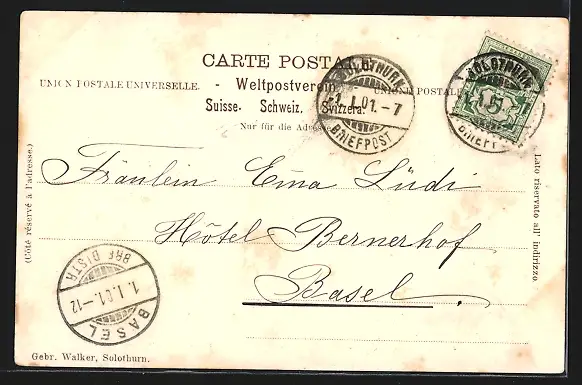 CARTE POSTALE
UNION POSTALE UNIVERSELLE. - Weltpostverein UNIONE POSTALE
Suisse. Schweiz. Svizzera.
Nur für die Adres
SOLOTHURN
1. I. 01. - 7
BRIEFPOST
SOLOTHURN
BRIEFP
(Côté réservé à l'adresse.)
Lato riservato all' indirizzo.
Fräulein Emma Lüdi
Hôtel Bernerhof
Basel.
BRF. DISTR.
1. I. 01. - 12
BASEL
Gebr. Walker, Solothurn.